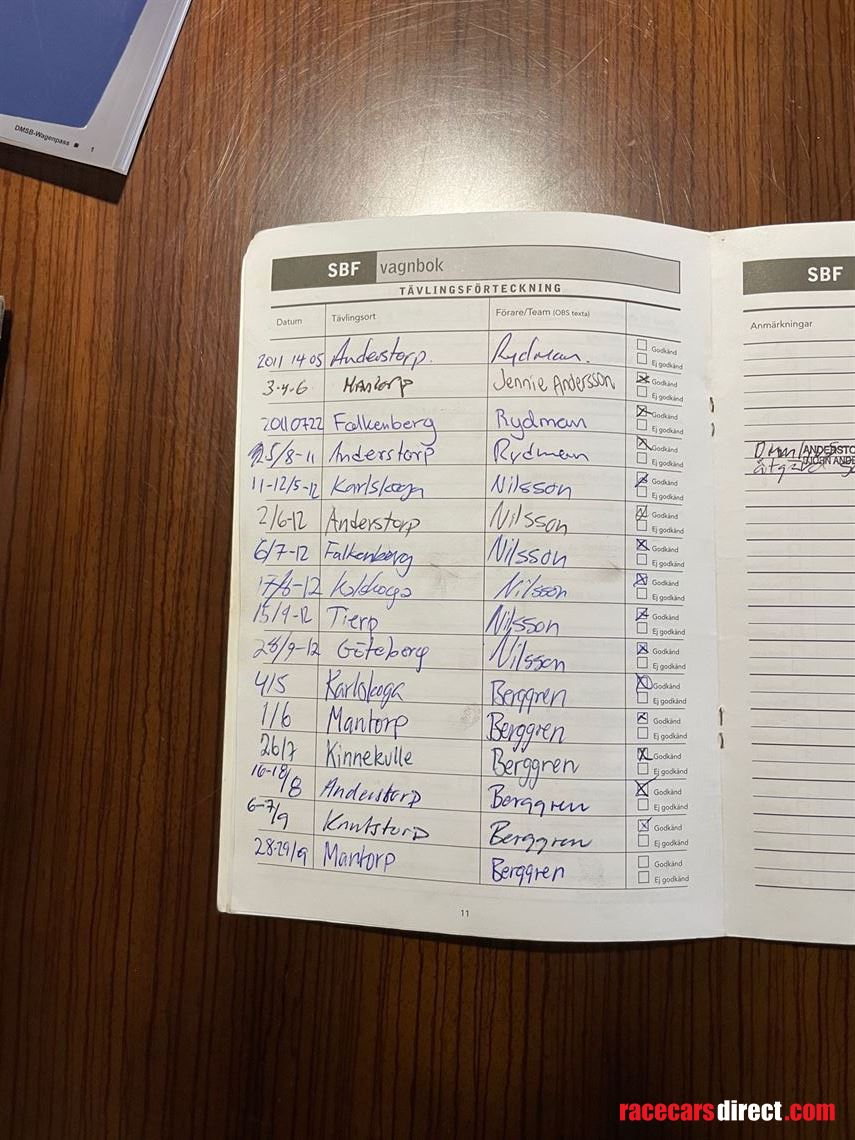 DMSB-Wagenpass ■ 1
SBF vagnbok
TÄVLINGSFÖRTECKNING
Datum Tävlingsort Förare/Team (OBS texta)
2011 14 05 Anderstorp. Rydman. Godkänd
Ej godkänd
3-4.6 Mantorp Jennie Andersson Godkänd
Ej godkänd
20110722 Falkenberg Rydman Godkänd
Ej godkänd
25/8-11 Anderstorp Rydman Godkänd
Ej godkänd
11-12/5-12 Karlskoga Nilsson Godkänd
Ej godkänd
2/6-12 Anderstorp Nilsson Godkänd
Ej godkänd
6/7-12 Falkenberg Nilsson Godkänd
Ej godkänd
Nilsson Godkänd
Ej godkänd
15/9-12 Tierp Nilsson Godkänd
Ej godkänd
28/9-12 Göteborg Nilsson Godkänd
Ej godkänd
4/5 Karlskoga Berggren Godkänd
Ej godkänd
1/6 Mantorp Berggren Godkänd
Ej godkänd
26/7 Kinnekulle Berggren Godkänd
Ej godkänd
16-18/8 Anderstorp Berggren Godkänd
Ej godkänd
6-7/9 Knutstorp Berggren Godkänd
Ej godkänd
28-29/9 Mantorp Berggren Godkänd
Ej godkänd
11
SBF
Anmärkningar
racecarsdirect.com